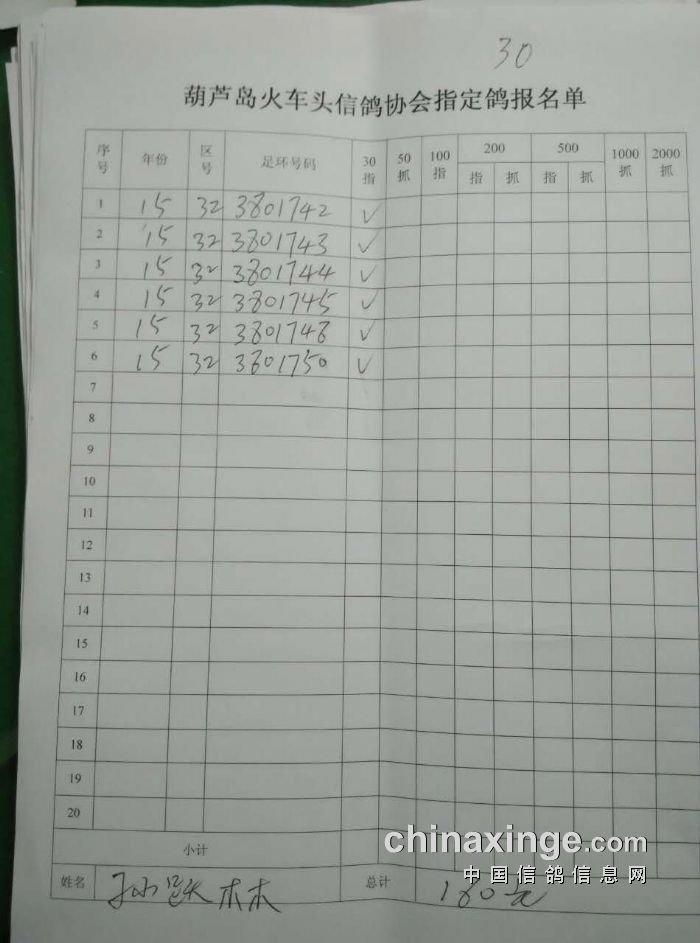 30
葫芦岛火车头信鸽协会指定鸽报名单
序号 年份 区号 足环号码 30指 50抓 100指 200 500 1000抓 2000抓
指 抓 指 抓
1 15 32 3801742 ✓
2 15 32 3801743 ✓
3 15 32 3801744 ✓
4 15 32 3801745 ✓
5 15 32 3801748 ✓
6 15 32 3801750 ✓
7
8
9
10
11
12
13
14
15
16
17
18
19
20
小计
姓名 孙跃林 总计 180元
chinaxinge.com
中国信鸽信息网